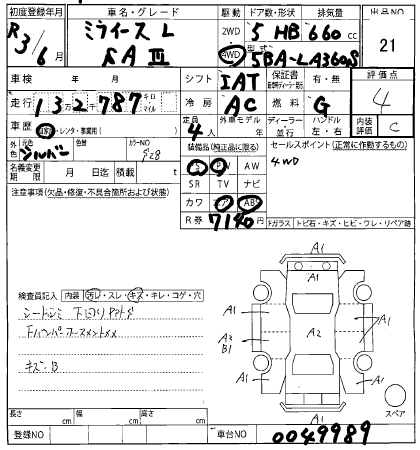 初度登録年月 車名・グレード 駆動 ドア数・形状 排気量 出品NO
R3/6 ミライース L SAⅢ 2WD 4WD 5 HB 660 cc 21
型式 5BA-LA360S
車検 年 月 シフト IAT 保証書 有 評価点 4
走行 132787 キロ マイル 冷房 AC 燃料 G
車歴 自家用・レンタ・事業用( ) 定員 4人 外車モデル 年 ディーラー・並行 ハンドル 左・右 内装評価 C
外色 シルバー 色替 カラーNO S28
装備品(純正品に限る) セールスポイント(正常に作動するもの)
名義変更期限 月 日迄 積載量 t
PS PW AW 4WD
SR TV ナビ
注意事項(欠品・修復・不具合箇所および状態)
カワ エアB ABS
R券 7140 円
Fガラス トビ石・キズ・ヒビ・ウレ・リペア跡
A1
A1
検査員記入 内装 汚レ・スレ・キズ・キレ・コゲ・穴
A1 A1
シートシミ 下回りサビ
A2 B1 A2 A1
キズ B
A1 A1
A1
スペア
A1
長さ cm 幅 cm 高さ cm
登録NO 車台NO 0049989